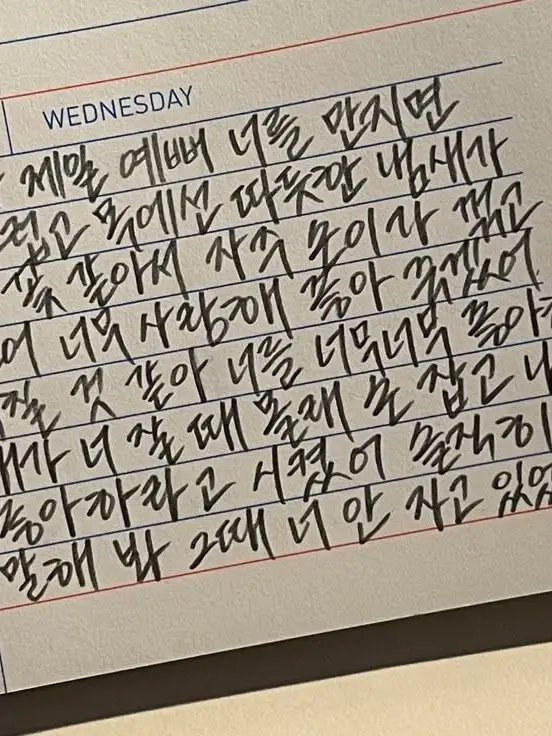 WEDNESDAY
제일 예뻐 너를 만지면
목에선 따뜻한 냄새가
꽃 같아서 자주 손이가 껴고
너무 사랑해 좋아 죽겠어
것 같아 너를 너무너무 좋아
내가 너 잘 때 몰래 손 잡고
좋아하라고 시켰어 솔직히
말해 봐 그때 너 안 자고 있었